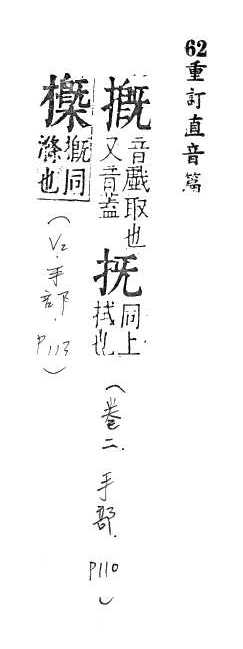 62重訂直音篇
摡 音戲取也又音蓋 抚 同上拭也
（卷二．手部．P110）
槩 摡同滌也
（V2．手部．P113）